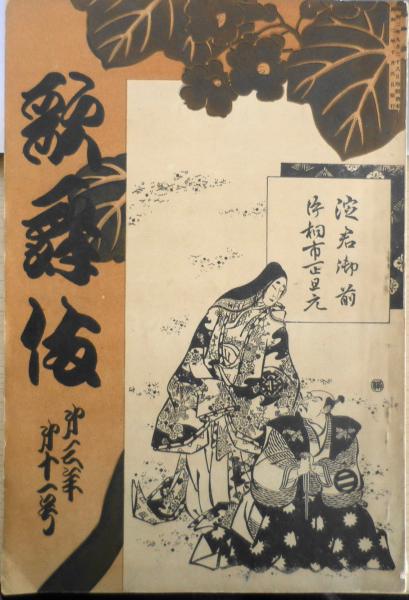 歌舞伎
第三年
第十一号
淀君御前
片桐市正且元